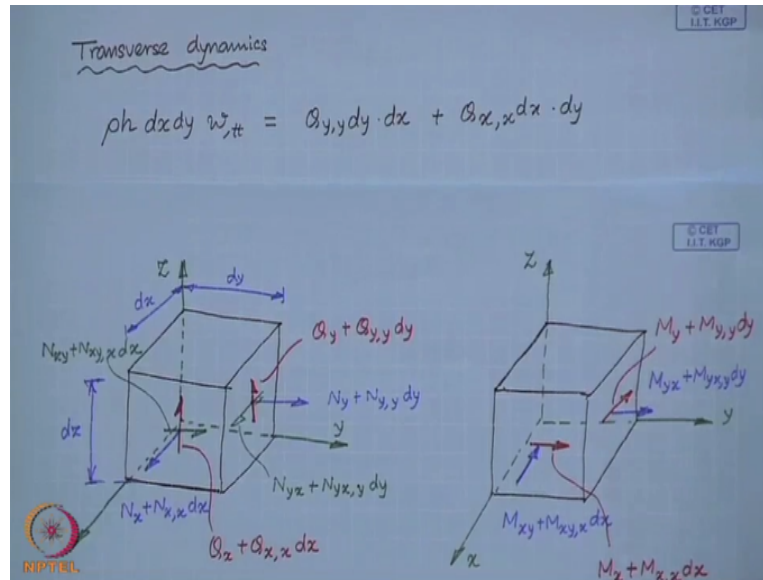 © CET
I.I.T. KGP
Transverse dynamics
ρh dxdy w,tt = Qy,y dy · dx + Qx,x dx · dy
© CET
I.I.T. KGP
z
dx
dy
Nxy + Nxy,x dx
Qy + Qy,y dy
Ny + Ny,y dy
y
dz
Nyx + Nyx,y dy
Nx + Nx,x dx
Qx + Qx,x dx
z
My + My,y dy
Myx + Myx,y dy
y
Mxy + Mxy,x dx
x
Mx + Mx,x dx
NPTEL